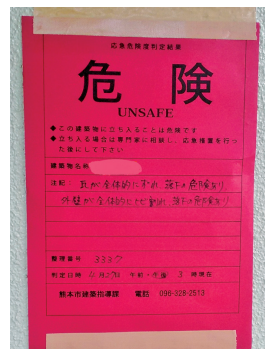 応急危険度判定結果
危険
UNSAFE
◆この建築物に立ち入ることは危険です
◆立ち入る場合は専門家に相談し、応急措置を行っ
た後にして下さい
建築物名称
注記： 瓦が全体的にずれ 落下の危険有り
外壁が全体的にヒビ割れ 落下の危険有り
整理番号 3337
判定日時 4月27日 午前・午後 3時現在
熊本市建築指導課 電話 096-328-2513